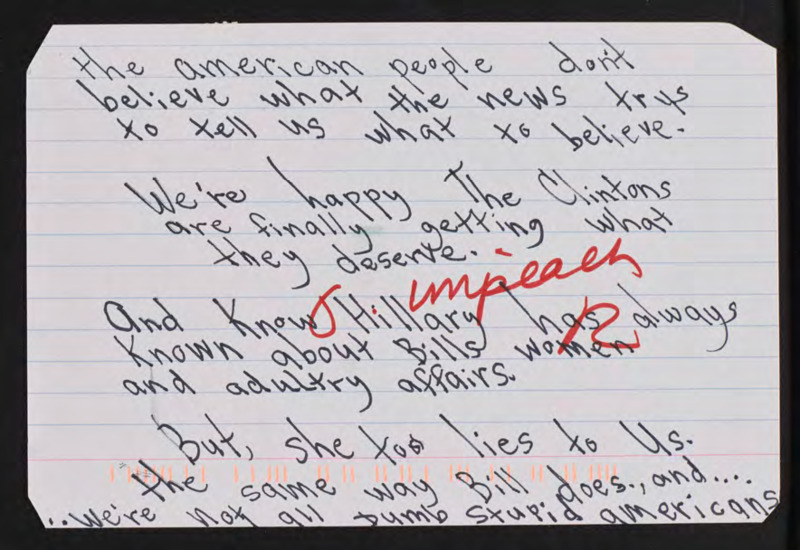 the american people don't
believe what the news trys
to tell us what to believe.
We're happy The Clintons
are finally getting what
they deserve.
impeach
And Know Hillary has always
Known about Bills women
and adultry affairs.
But, she too lies to Us.
the same way Bill does., and....
..We're not all dumb stupid americans